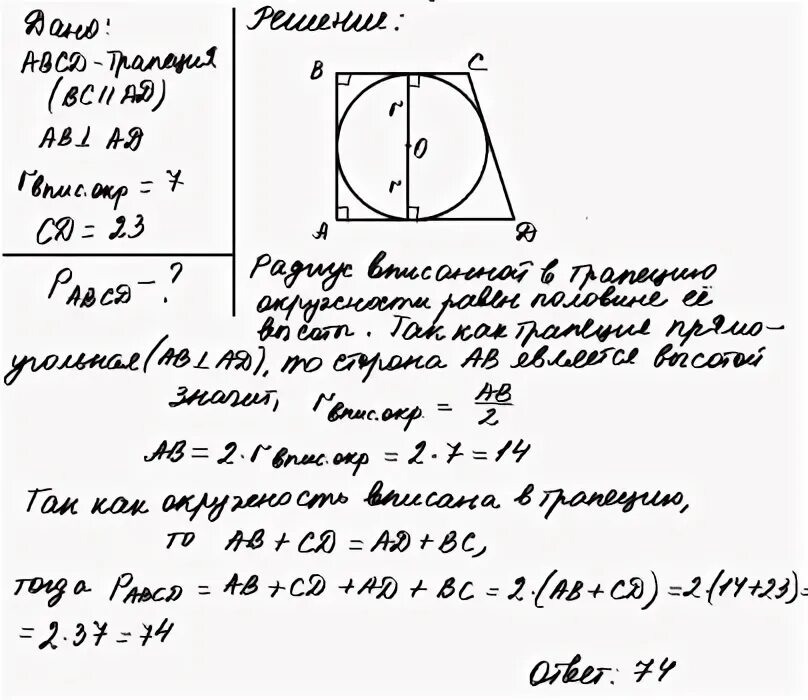 Дано:
ABCD - Трапеция
(BC || AD)
AB ⊥ AD
r впис.окр = 7
CD = 23
P ABCD - ?
Решение:
B C
r
O
r
A D
Радиус вписанной в трапецию
окружности равен половине её
высоты. Так как трапеция прямо-
угольная (AB ⊥ AD), то сторона AB является высотой
значит, r впис.окр. = AB/2
AB = 2·r впис.окр = 2·7 = 14
Так как окружность вписана в трапецию,
то AB + CD = AD + BC,
тогда P ABCD = AB + CD + AD + BC = 2·(AB + CD) = 2·(14+23) =
= 2·37 = 74
Ответ: 74